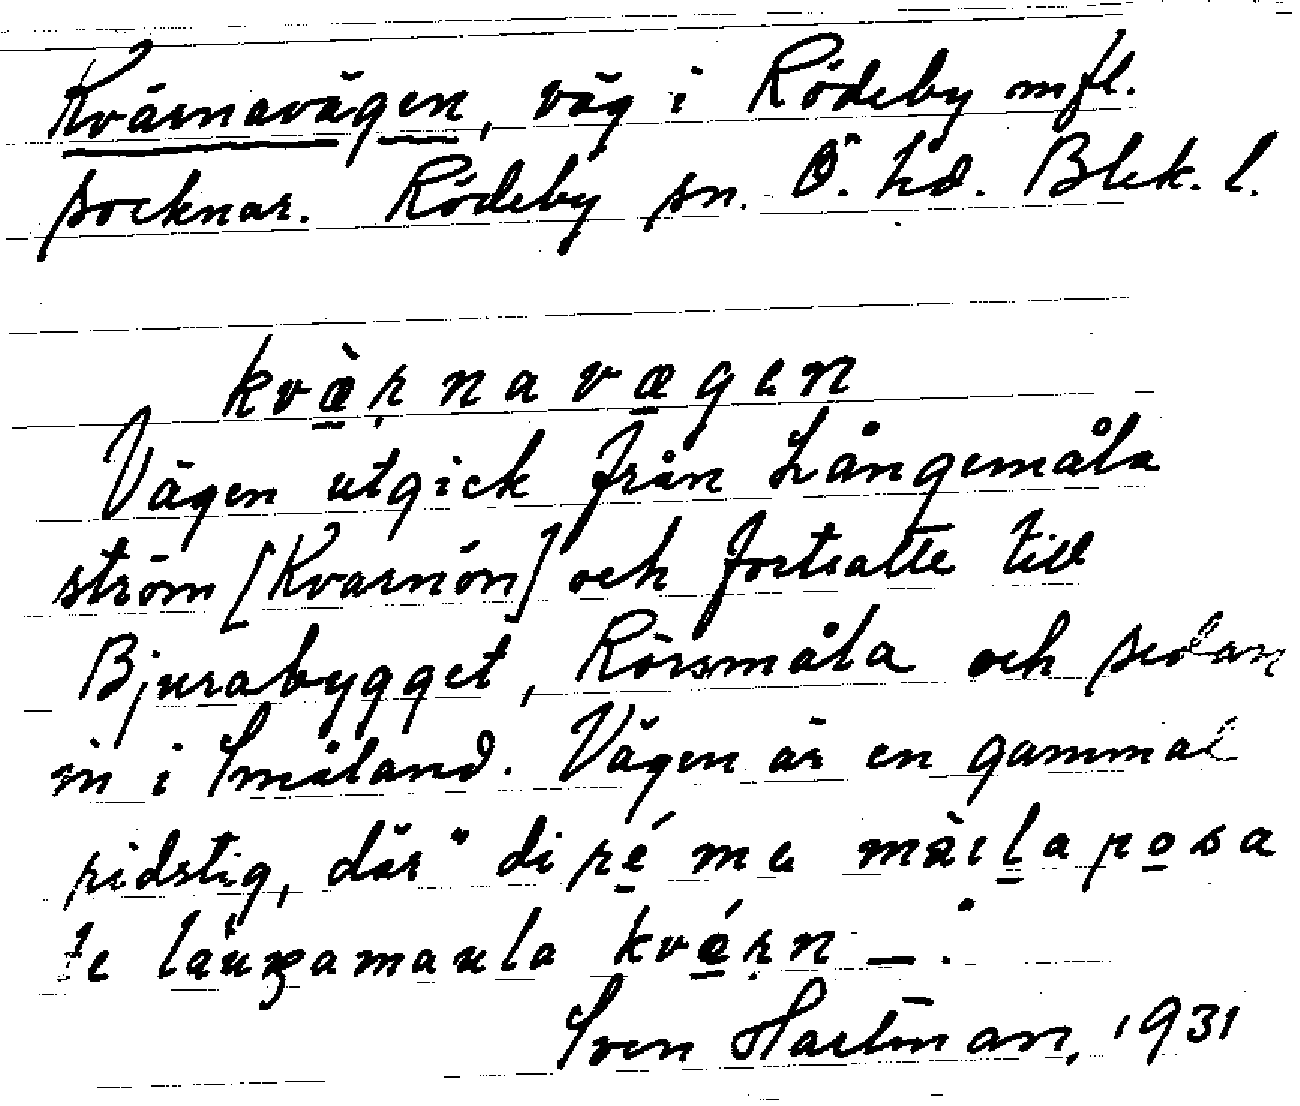 Kvärnavägen, väg i Rödeby m fl.
socknar. Rödeby sn. Ö. hd. Blek. l.
kvæ̀ṛnavægen
Vägen utgick från Långemåla
ström [Kvarnön] och fortsatte till
Bjurabygget, Rörsmåla och sedan
in i Småland. Vägen är en gammal
ridstig, där "di ré me mäɩlaposa
te läuŋamaula kvǽṛn —."
Sven Hartman, 1931